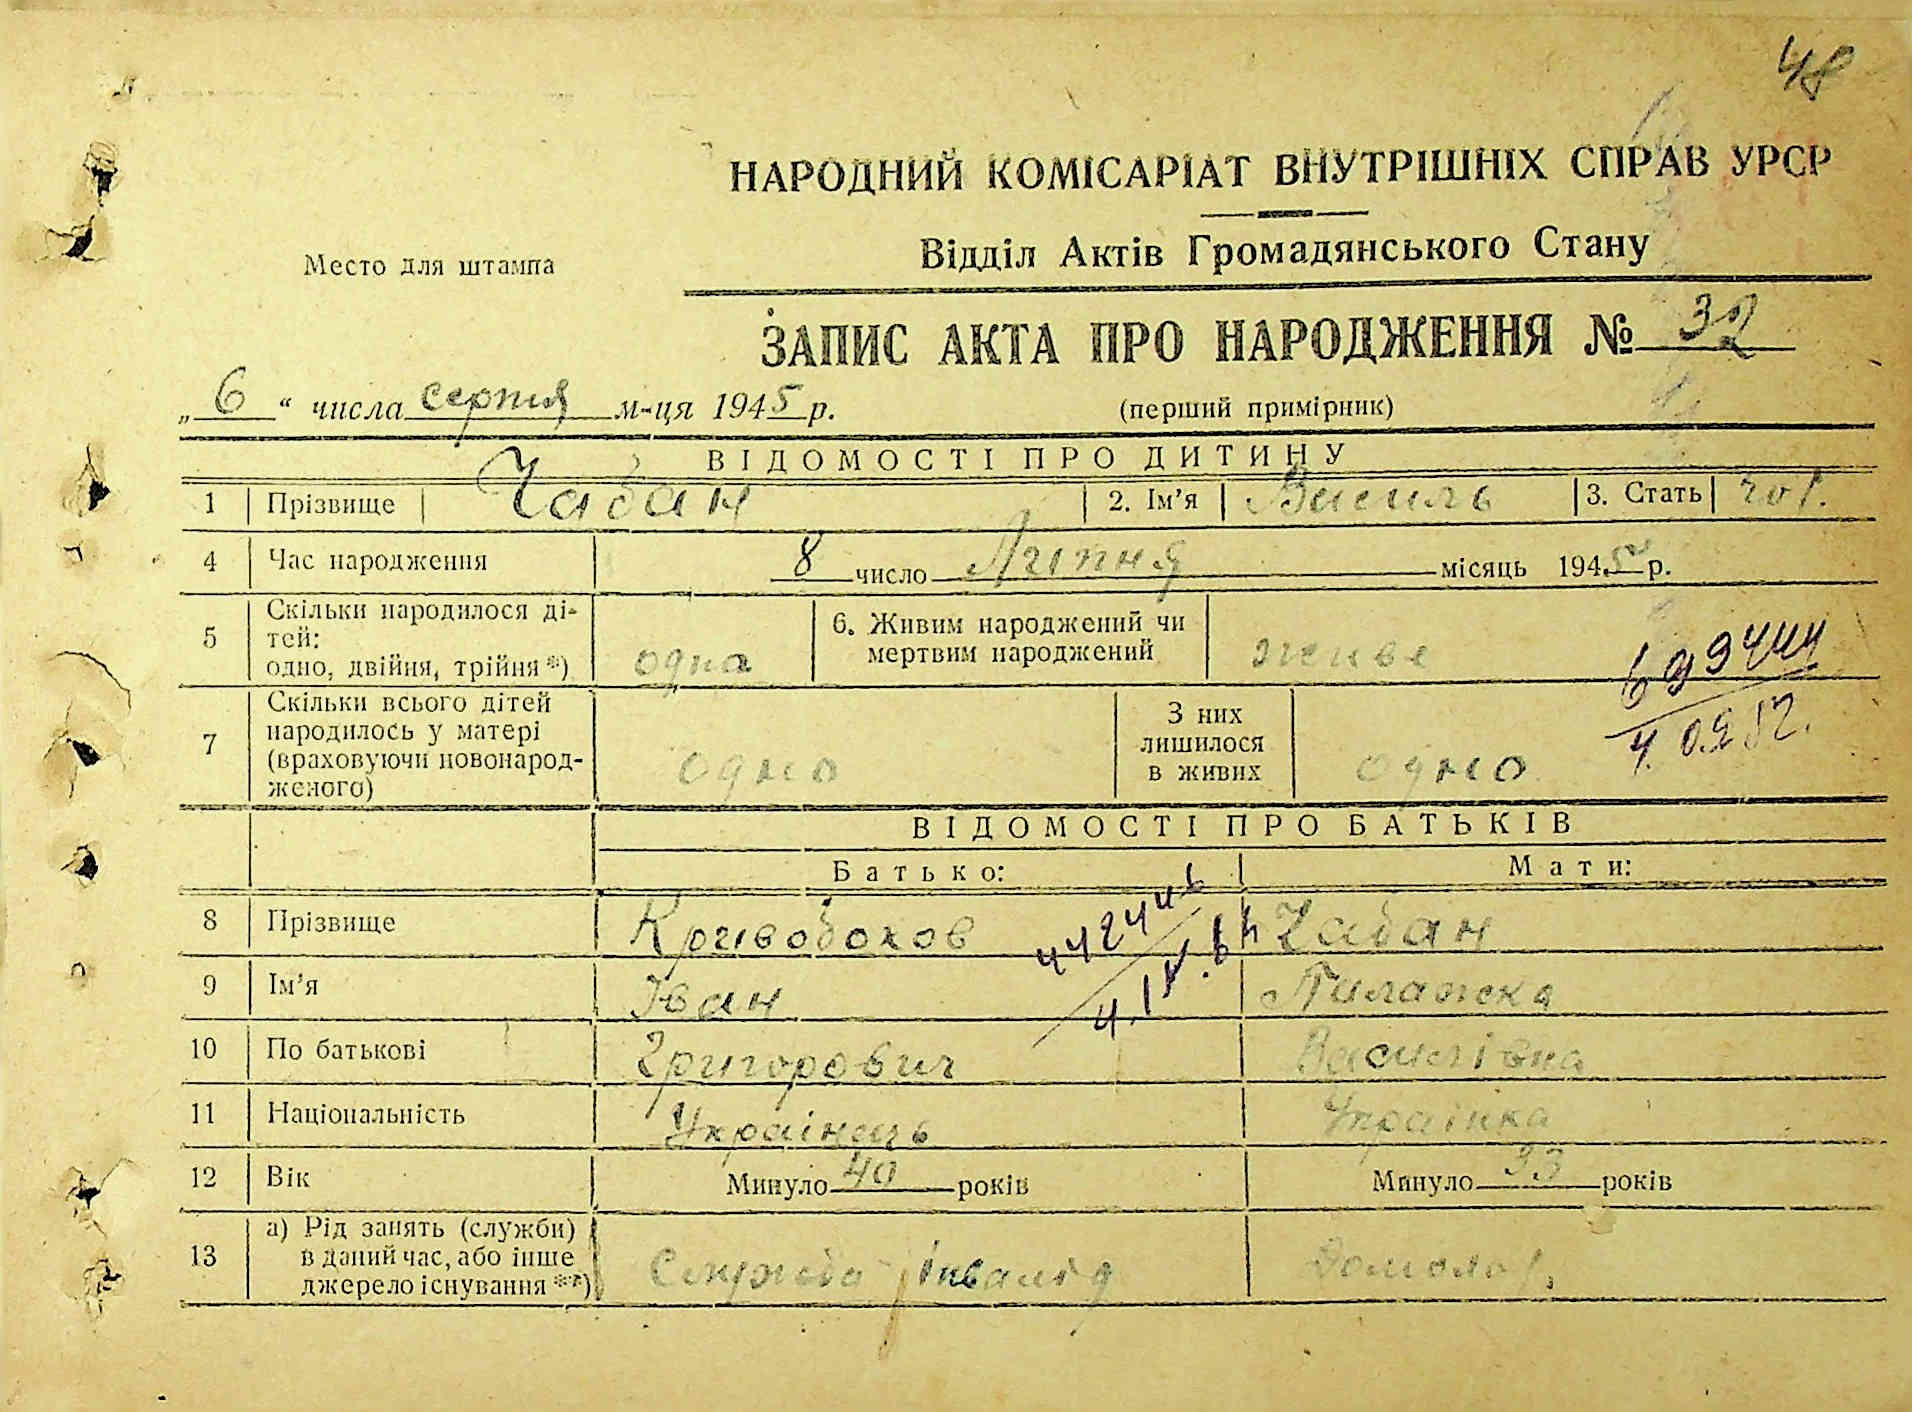 48
НАРОДНИЙ КОМІСАРІАТ ВНУТРІШНІХ СПРАВ УРСР
Відділ Актів Громадянського Стану
Место для штампа
ЗАПИС АКТА ПРО НАРОДЖЕННЯ № 32
„ 6 “ числа серпня м-ця 1945 р. (перший примірник)
ВІДОМОСТІ ПРО ДИТИНУ
1 Прізвище Чабан 2. Ім'я Василь 3. Стать чол.
4 Час народження 8 число Липня місяць 1945 р.
5 Скільки народилося ді-
тей:
одно, двійня, трійня *) одна
6. Живим народжений чи
мертвим народжений живе
7 Скільки всього дітей
народилось у матері
(враховуючи новонарод-
женого) одно
З них
лишилося
в живих одно
ВІДОМОСТІ ПРО БАТЬКІВ
Батько: Мати:
8 Прізвище Кривобоков Чабан
9 Ім'я Іван Пилажка
10 По батькові Григорович Василівна
11 Національність Українець Українка
12 Вік Минуло 40 років Минуло 33 років
13 а) Рід занять (служби)
в даний час, або інше
джерело існування **) Служба інвалід